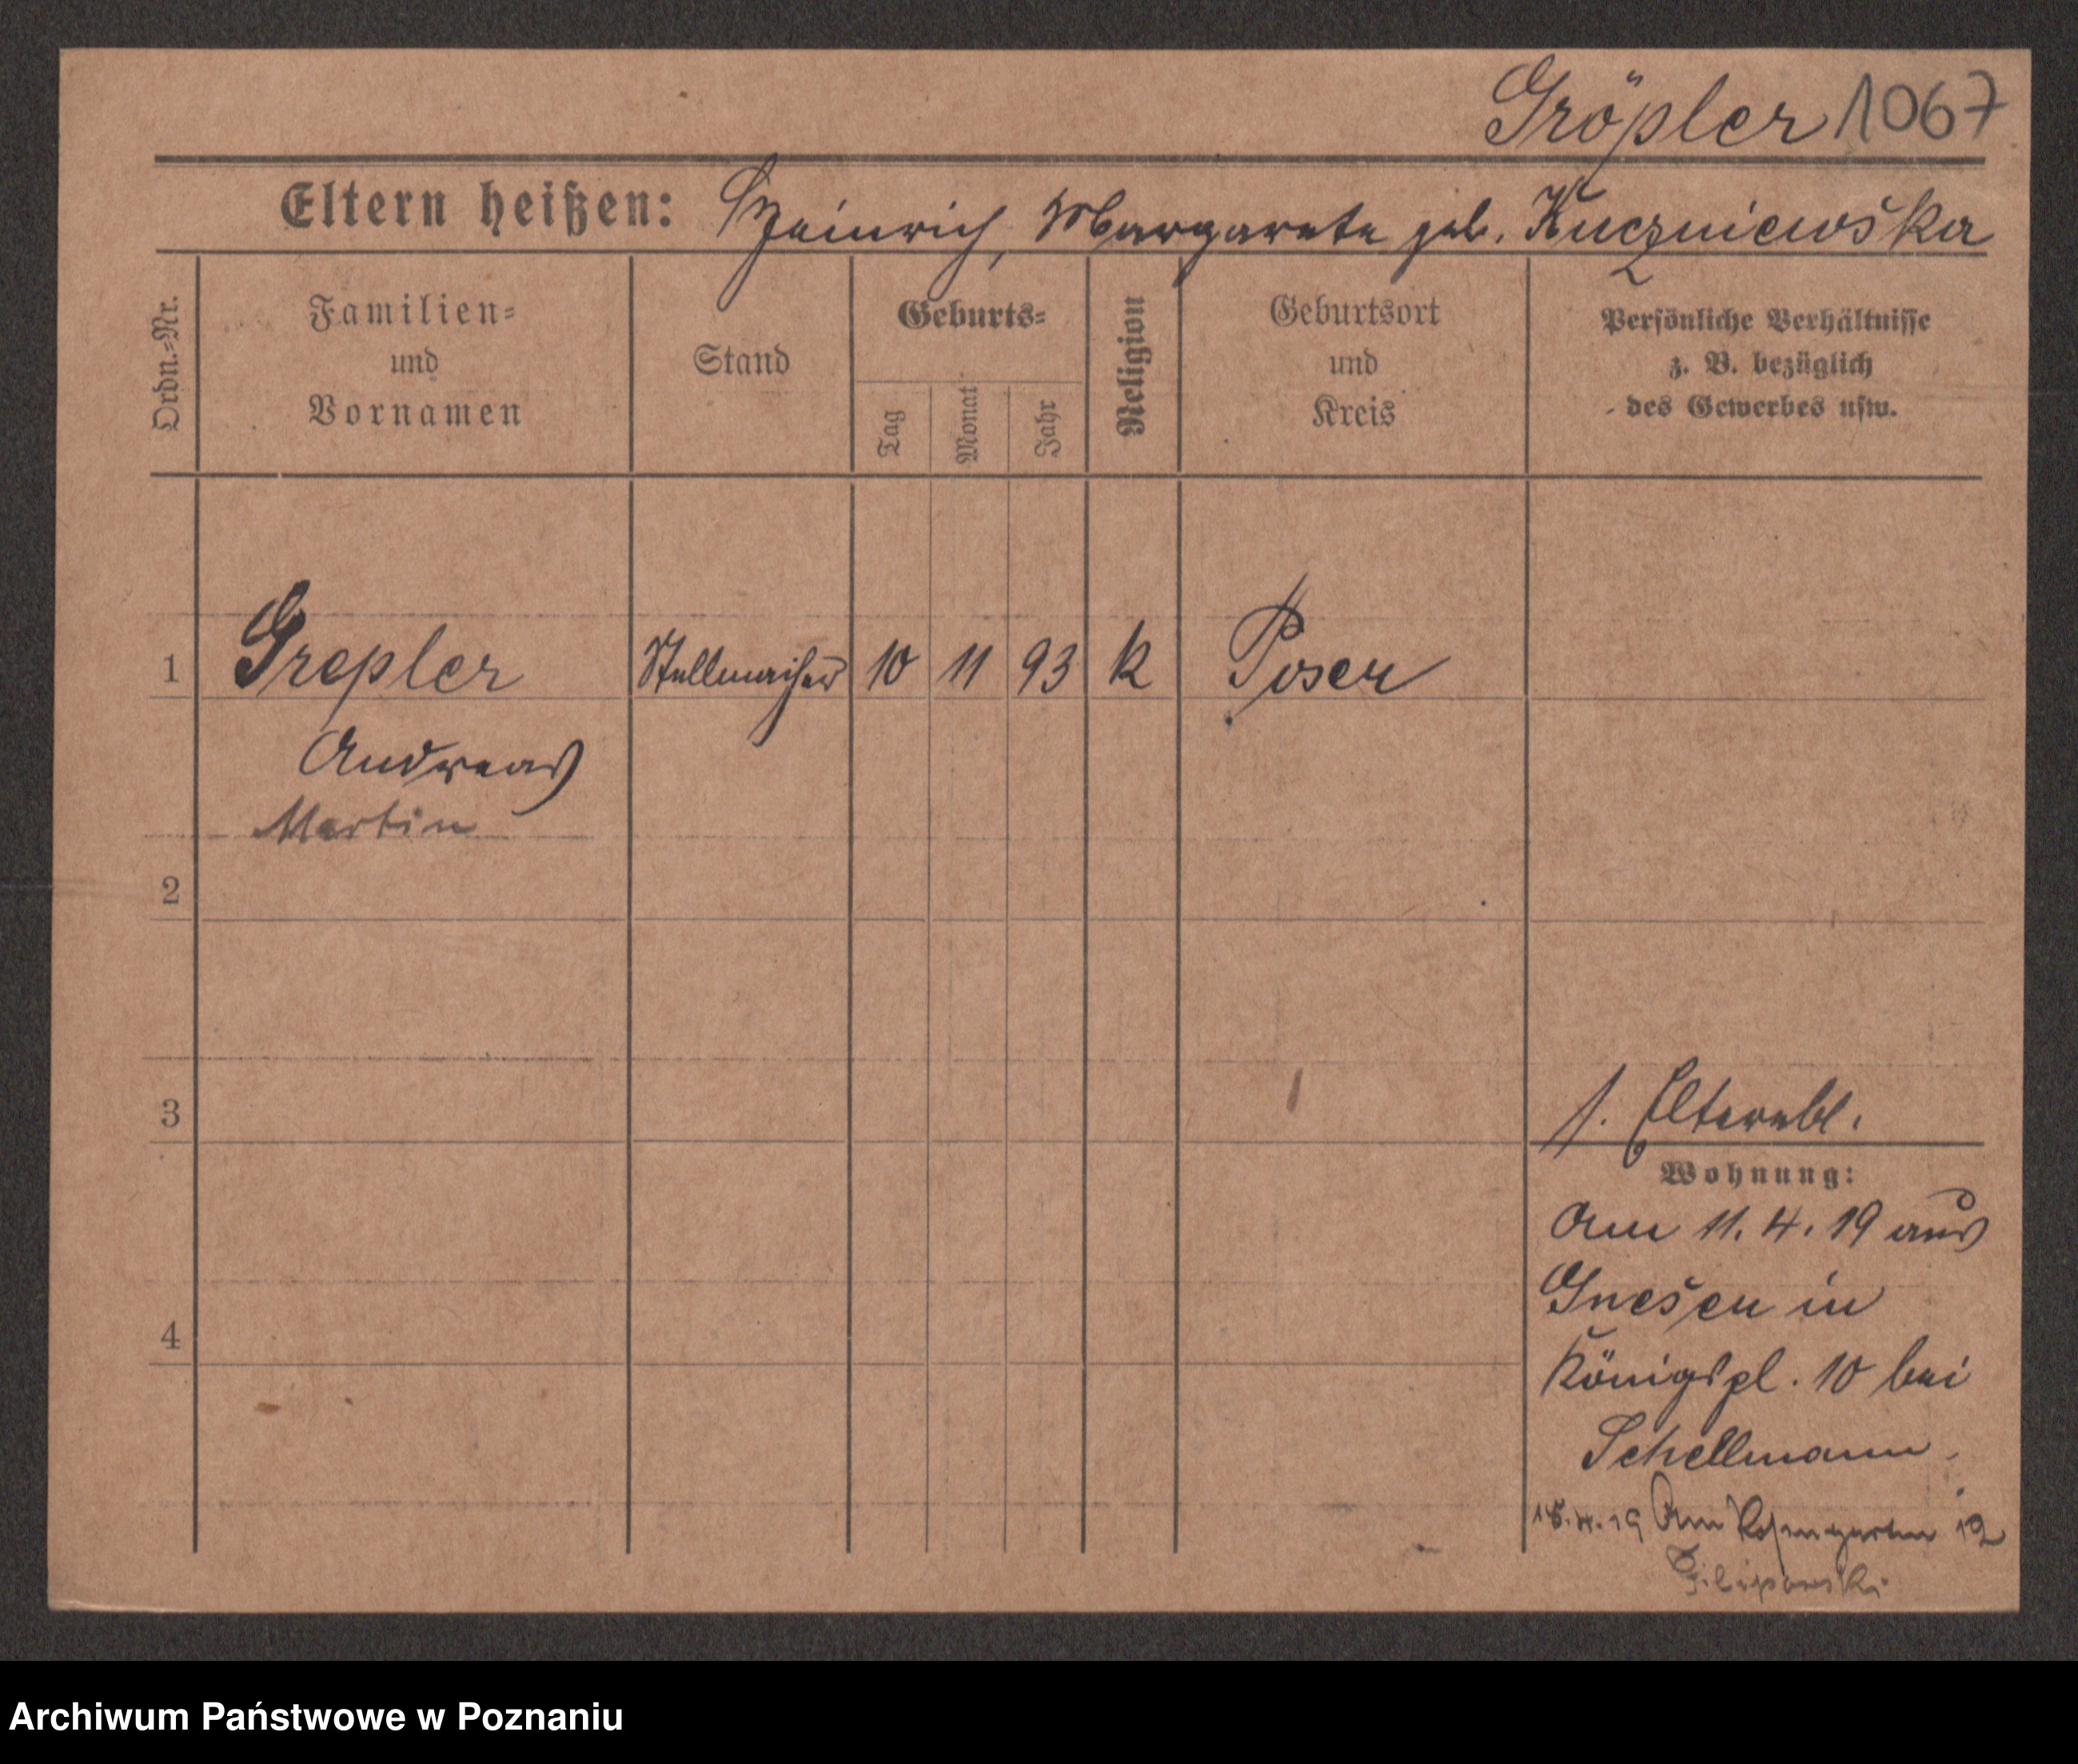 Gröpler 1067
Eltern heißen: Heinrich, Margarete geb. Kuczniewska
Ordn.=Nr.
Familien=
und
Vornamen
Stand
Geburts=
Tag
Monat
Jahr
Religion
Geburtsort
und
Kreis
Persönliche Verhältnisse
z. B. bezüglich
des Gewerbes usw.
1 Grepler Stellmacher 10 11 93 k Posen
Andreas
Martin
2
3
s. Elternbl.
Wohnung:
Am 11. 4. 19 aus
Gnesen in
4
Königspl. 10 bei
Schellmann
15.4.19 Am Rosengarten 12
Filipowski
Archiwum Państwowe w Poznaniu